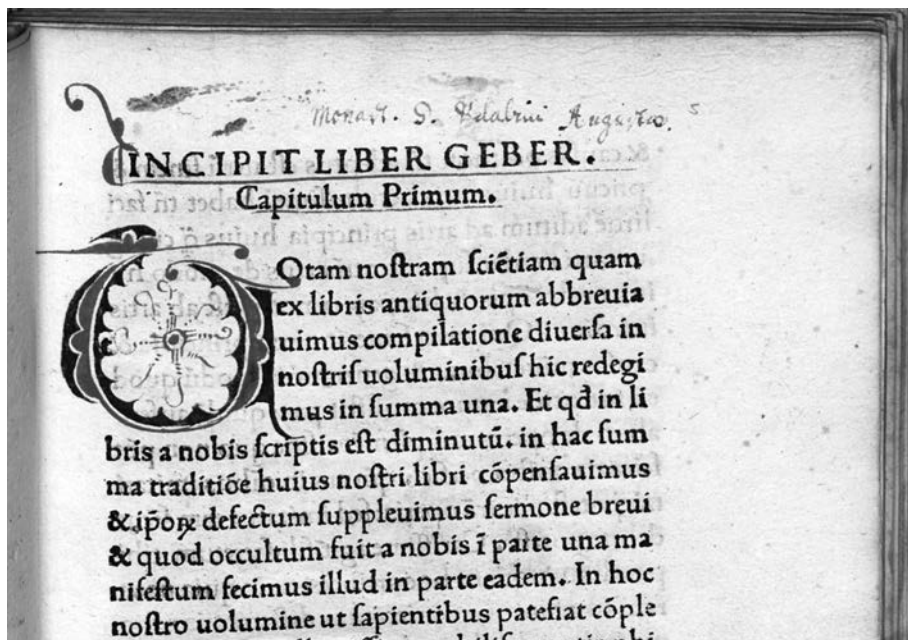 Monast. S. Udalrici Augustae. 5
INCIPIT LIBER GEBER.
Capitulum Primum.
TOtam noſtram ſciētiam quam
ex libris antiquorum abbreuia
uimus compilatione diuerſa in
noſtriſ uoluminibuſ hic redegi
mus in ſumma una. Et qđ in li
bris a nobis ſcriptis eſt diminutū. in hac ſum
ma traditiōe huius noſtri libri cōpenſauimus
& ip̄oꝝ defectum ſuppleuimus ſermone breui
& quod occultum fuit a nobis ī parte una ma
nifeſtum fecimus illud in parte eadem. In hoc
noſtro uolumine ut ſapientibus patefiat cōple